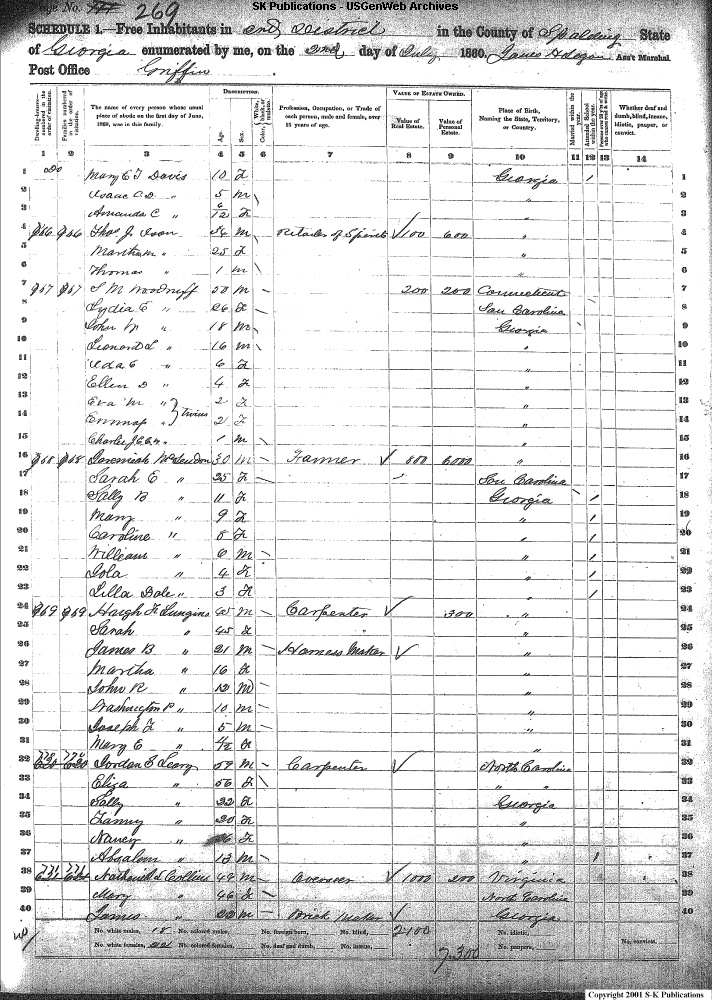 SK Publications - USGenWeb Archives
Page No. 269
SCHEDULE 1.—Free Inhabitants in 2nd District in the County of Spalding State
of Georgia enumerated by me, on the 2nd day of July 1860. Ass't Marshal
Post Office Griffin
DESCRIPTION.
VALUE OF ESTATE OWNED.
Dwelling-houses—numbered in the order of visitation.
Families numbered in the order of visitation.
The name of every person whose usual place of abode on the first day of June, 1860, was in this family.
Age.
Sex.
Color, White, black, or mulatto.
Profession, Occupation, or Trade of each person, male and female, over 15 years of age.
Value of Real Estate.
Value of Personal Estate.
Place of Birth, Naming the State, Territory, or Country.
Married within the year.
Attended School within the year.
Whether deaf and dumb, blind, insane, idiotic, pauper, or convict.
1 2 3 4 5 6 7 8 9 10 11 12 13 14
1 Mary E J Davis 10 F Georgia / 1
2 Isaac C D " 5 M \ " 2
3 Amanda C " 6/12 F " 3
4 Thos J Ison M Retailer of Spirits 100 600 " 4
5 " 25 F " 5
6 Thomas " 1 M \ " 6
7 S M Woodruff 50 M – 200 200 Connecticut 7
8 Lydia E " 26 F Sou Carolina 8
9 John M " 18 M \ Georgia 9
10 Leonard L " 16 M \ " 10
11 Ida E " 6 F " 11
12 Ellen D " 4 F " 12
13 Eva M " 2 F " 13
Twins
14 " 2 F " 14
15 " 1 M – " 15
16 Jeremiah McLendon 30 M – Farmer 800 6000 " 16
17 Sarah E " 25 F Sou Carolina 17
18 Sally B " 11 F Georgia / 18
19 Mary " 9 F " / 19
20 Caroline " 8 F " / 20
21 William " 6 M – " / 21
22 Iola " 4 F " / 22
23 Lilla Dale " 3 F " / 23
24 45 M – Carpenter 300 " 24
25 Sarah " 45 F " 25
26 James B " 21 M – Harness Maker " 26
27 Martha " 16 F " 27
28 John R " 12 M " 28
29 Washington P " 10 M – " 29
30 Joseph F " 5 M – " 30
31 Mary E " F " 31
32 Jordan E Leary 59 M – Carpenter North Carolina 32
33 Eliza " 56 F " " 33
34 Sally " 22 F Georgia 34
35 Fanny " 20 F " 35
36 Nancy " F " 36
37 Absalom " 13 M – " / 37
38 Nathaniel S Collins 49 M – Overseer 1000 200 Virginia 38
39 Mary " 46 F North Carolina 39
40 James " 20 M – Brick Maker Georgia 40
No. white males, 18 No. colored males, No. foreign born, No. blind, 2100 No. idiotic,
No. white females, 22 No. colored females, No. deaf and dumb, No. insane, 7.300 No. paupers, No. convicts,
Copyright 2001 S-K Publications